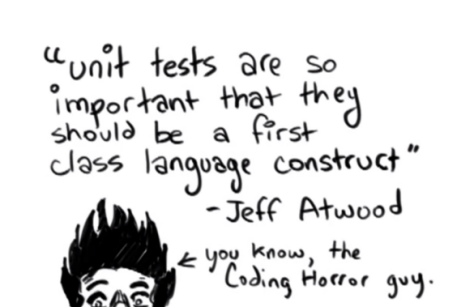 "unit tests are so
important that they
should be a first
class language construct"
- Jeff Atwood
you know, the
Coding Horror guy.